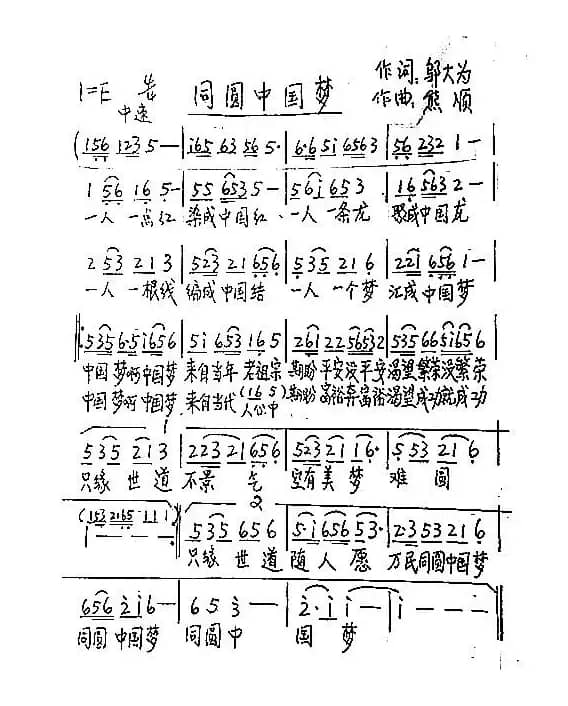 作词:邬大为
1=E 同圆中国梦
中速 作曲:熊顺
(156 123 5— | i65 63 56 5· | 6·6 5i 6563 | 56 232 1 —
1 56 16 5— | 55 653 5— | 56i 653 | 16 563 2—
一人一点红 染成中国红、一人一条龙 聚成中国龙
2 53 213 | 523 21 656 | 535 21 6 | 221 656 1—
一人一根线 编成中国结 一人一个梦 汇成中国梦
535 6·5 i656 | 5i 653 16 5 | 261 22 56532 | 535 66 5i656
中国梦啊中国梦 来自当年老祖宗 期盼平安没平安 渴望繁荣没繁荣
中国梦啊中国梦 来自当代(16 5)人心中 期盼富裕奔富裕 渴望成功就成功
1
535 213 | 223 21 656 | 523 21 16· | 553 21 6
只缘世道 不景气 空有美梦 难圆
2
(153 2165 111)
1 — — — 535 656 | 5·i 656 53· | 2·3 53 21 6
只缘世道 随人愿 万民同圆中国梦
656 2i6— | 65 3 — | 2·i i — | i — —
同圆中国梦 同圆中 国梦